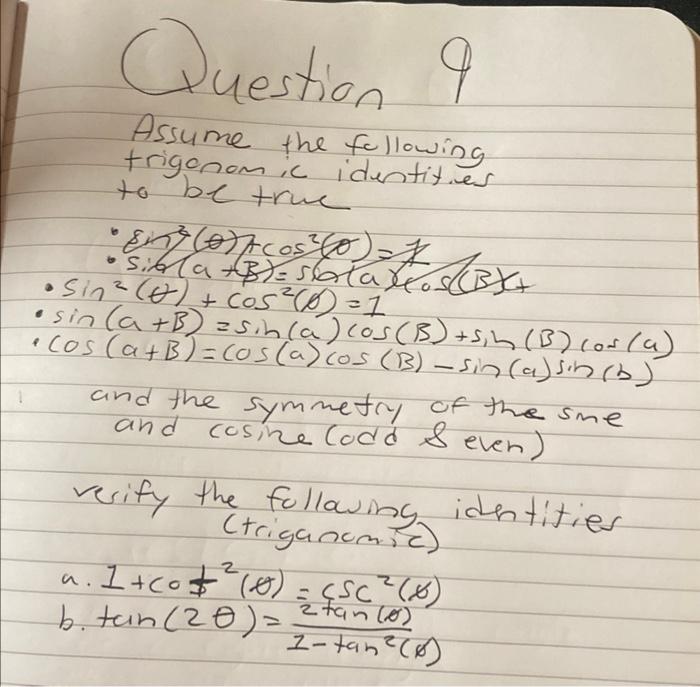 Question 9
Assume the following
trigonomic identities
to be true
• sin²(θ)+cos²(θ)=1
• sin(a+B)=sin(a)cos(B)+
• sin²(θ) + cos²(θ)=1
• sin(a+B)=sin(a)cos(B)+sin(B)cos(a)
• cos(a+B)=cos(a)cos(B)-sin(a)sin(b)
and the symmetry of the sine
and cosine (odd & even)
verify the following identities
(triganomic)
a. 1+cot²(θ)=csc²(θ)
b. tan(2θ)= 2tan(θ)
1-tan²(θ)